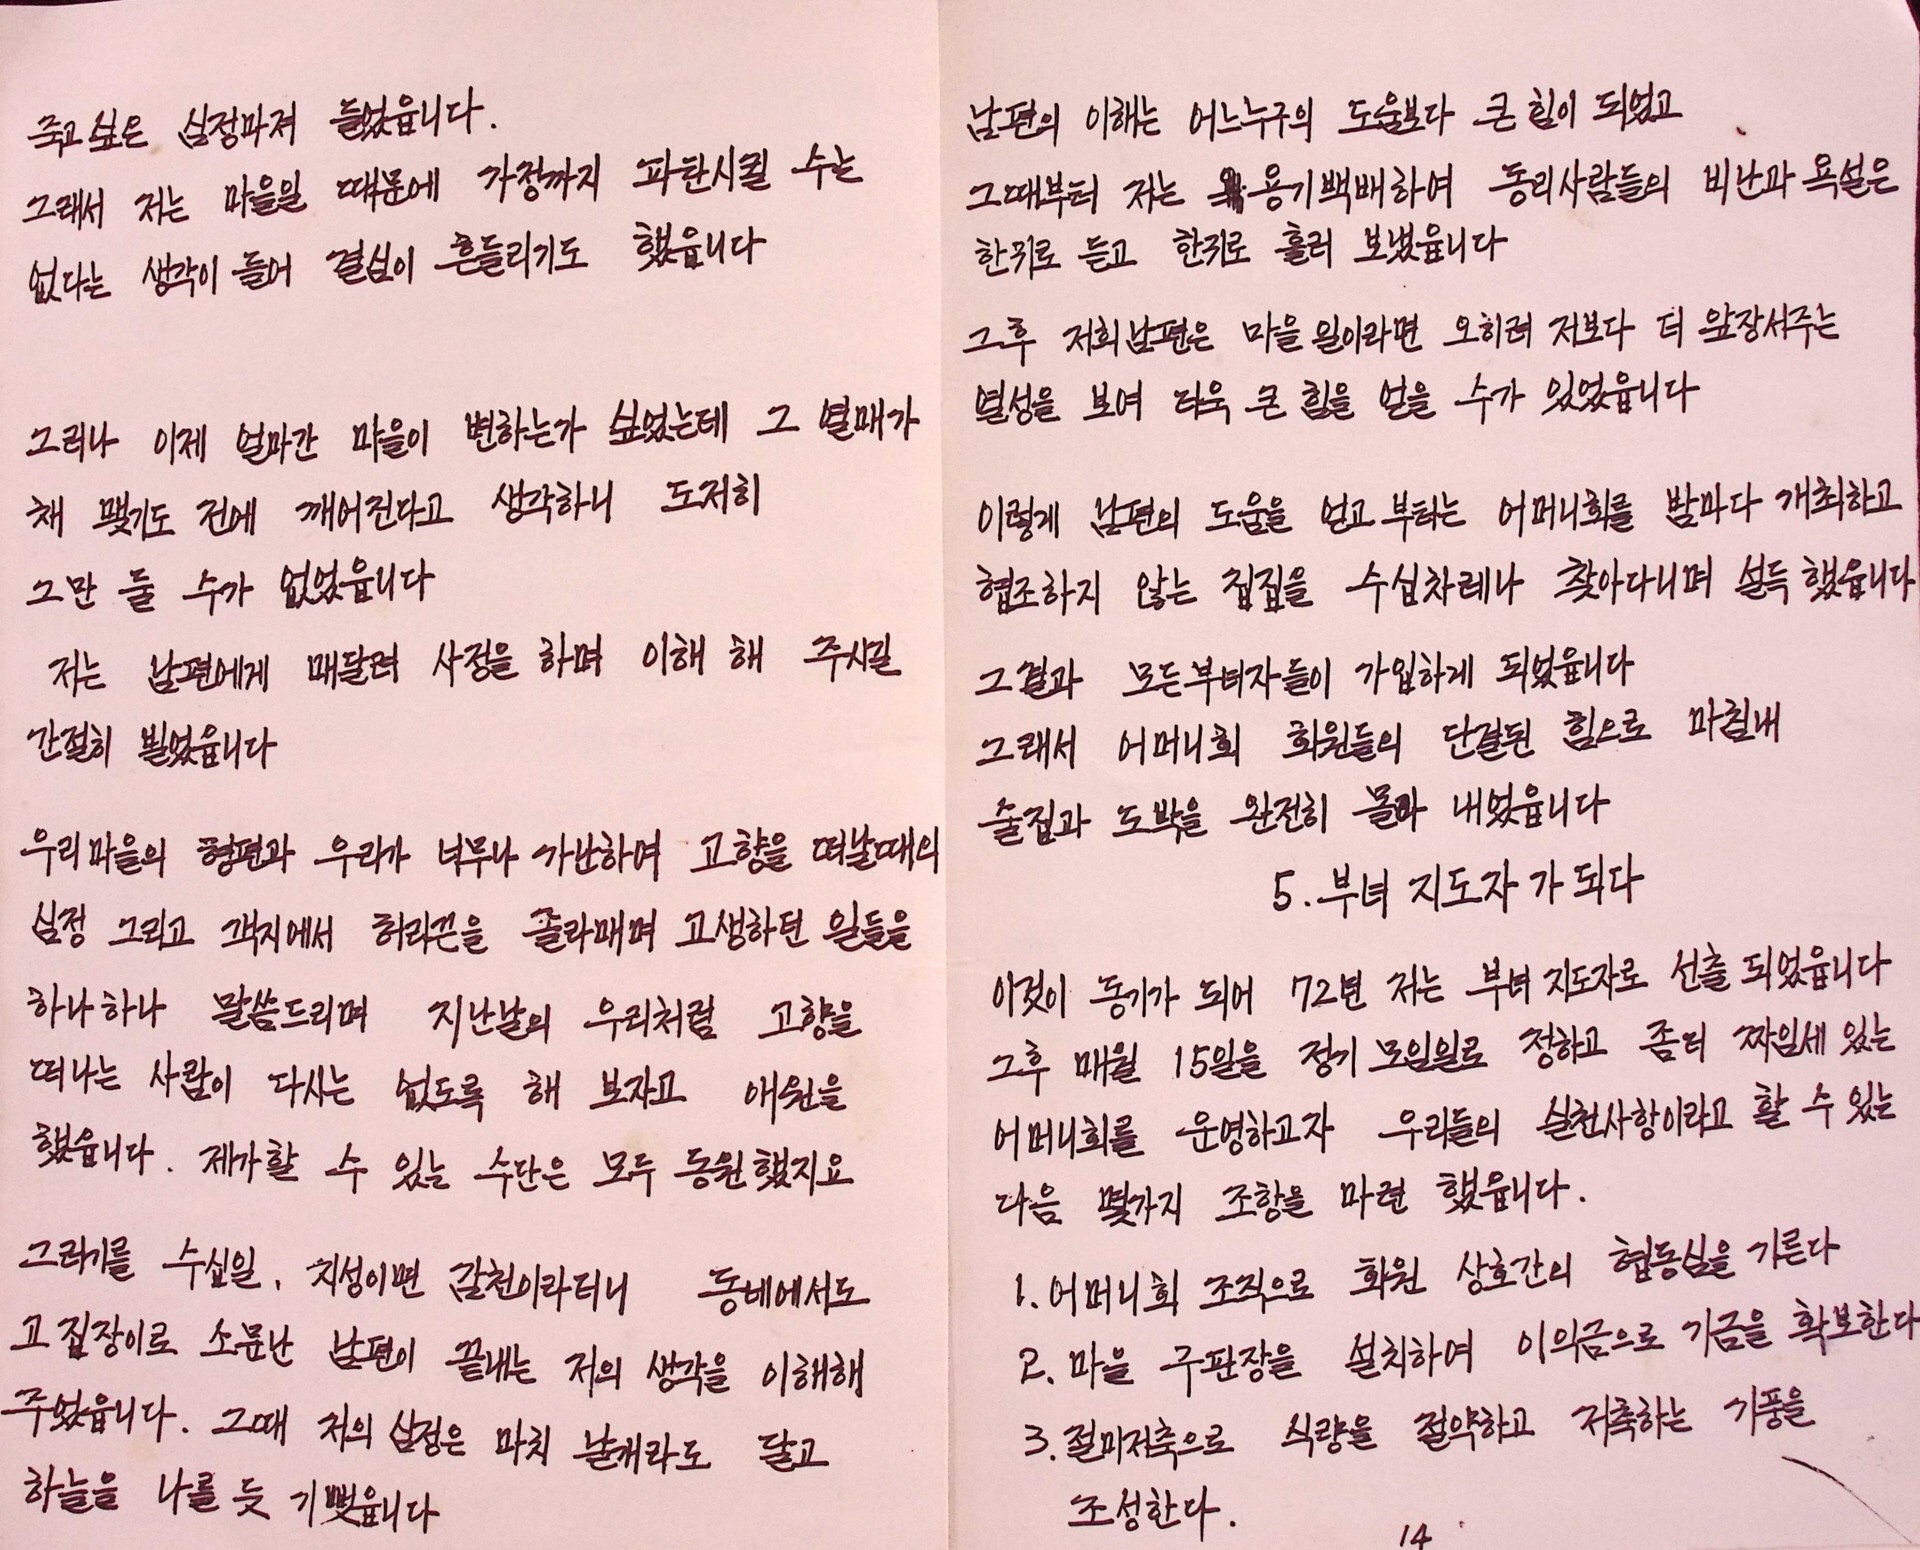 죽고 싶은 심정마져 들었읍니다.
그래서 저는 마을일 때문에 가정까지 파탄시킬 수는
없다는 생각이 들어 결심이 흔들리기도 했읍니다
그러나 이제 얼마간 마을이 변하는가 싶었는데 그 열매가
채 맺기도 전에 깨어진다고 생각하니 도저히
그만 둘 수가 없었읍니다
저는 남편에게 매달려 사정을 하며 이해 해 주시길
간절히 빌었읍니다
우리마을의 형편과 우리가 너무나 가난하여 고향을 떠날때의
심정 그리고 객지에서 허리끈을 졸라매며 고생하던 일들을
하나하나 말씀드리며 지난날의 우리처럼 고향을
떠나는 사람이 다시는 없도록 해 보자고 애원을
했읍니다. 제가할 수 있는 수단은 모두 동원했지요
그러기를 수십일, 지성이면 감천이라더니 동네에서도
고집장이로 소문난 남편이 끝내는 저의 생각을 이해해
주었읍니다. 그때 저의 심정은 마치 날개라도 달고
하늘을 나를 듯 기뻤읍니다
남편의 이해는 어느누구의 도움보다 큰 힘이 되었고
그때부터 저는 용기백배하여 동리사람들의 비난과 욕설은
한귀로 듣고 한귀로 흘러 보냈읍니다
그후 저희남편은 마을 일이라면 오히려 저보다 더 앞장서주는
열성을 보여 더욱 큰 힘을 얻을 수가 있었읍니다
이렇게 남편의 도움을 얻고 부터는 어머니회를 밤마다 개최하고
협조하지 않는 집집을 수십차례나 찾아다니며 설득 했읍니다
그결과 모든부녀자들이 가입하게 되었읍니다
그래서 어머니회 회원들의 단결된 힘으로 마침내
술집과 도박을 완전히 몰아 내었읍니다
5. 부녀 지도자가 되다
이것이 동기가 되어 72년 저는 부녀 지도자로 선출 되었읍니다
그후 매월 15일을 정기 모임일로 정하고 좀더 짜임세 있는
어머니회를 운영하고자 우리들의 실천사항이라고 할 수 있는
다음 몇가지 조항을 마련 했읍니다.
1. 어머니회 조직으로 회원 상호간의 협동심을 기른다
2. 마을 구판장을 설치하여 이익금으로 기금을 확보한다
3. 절미저축으로 식량을 절약하고 저축하는 기풍을
조성한다.
14